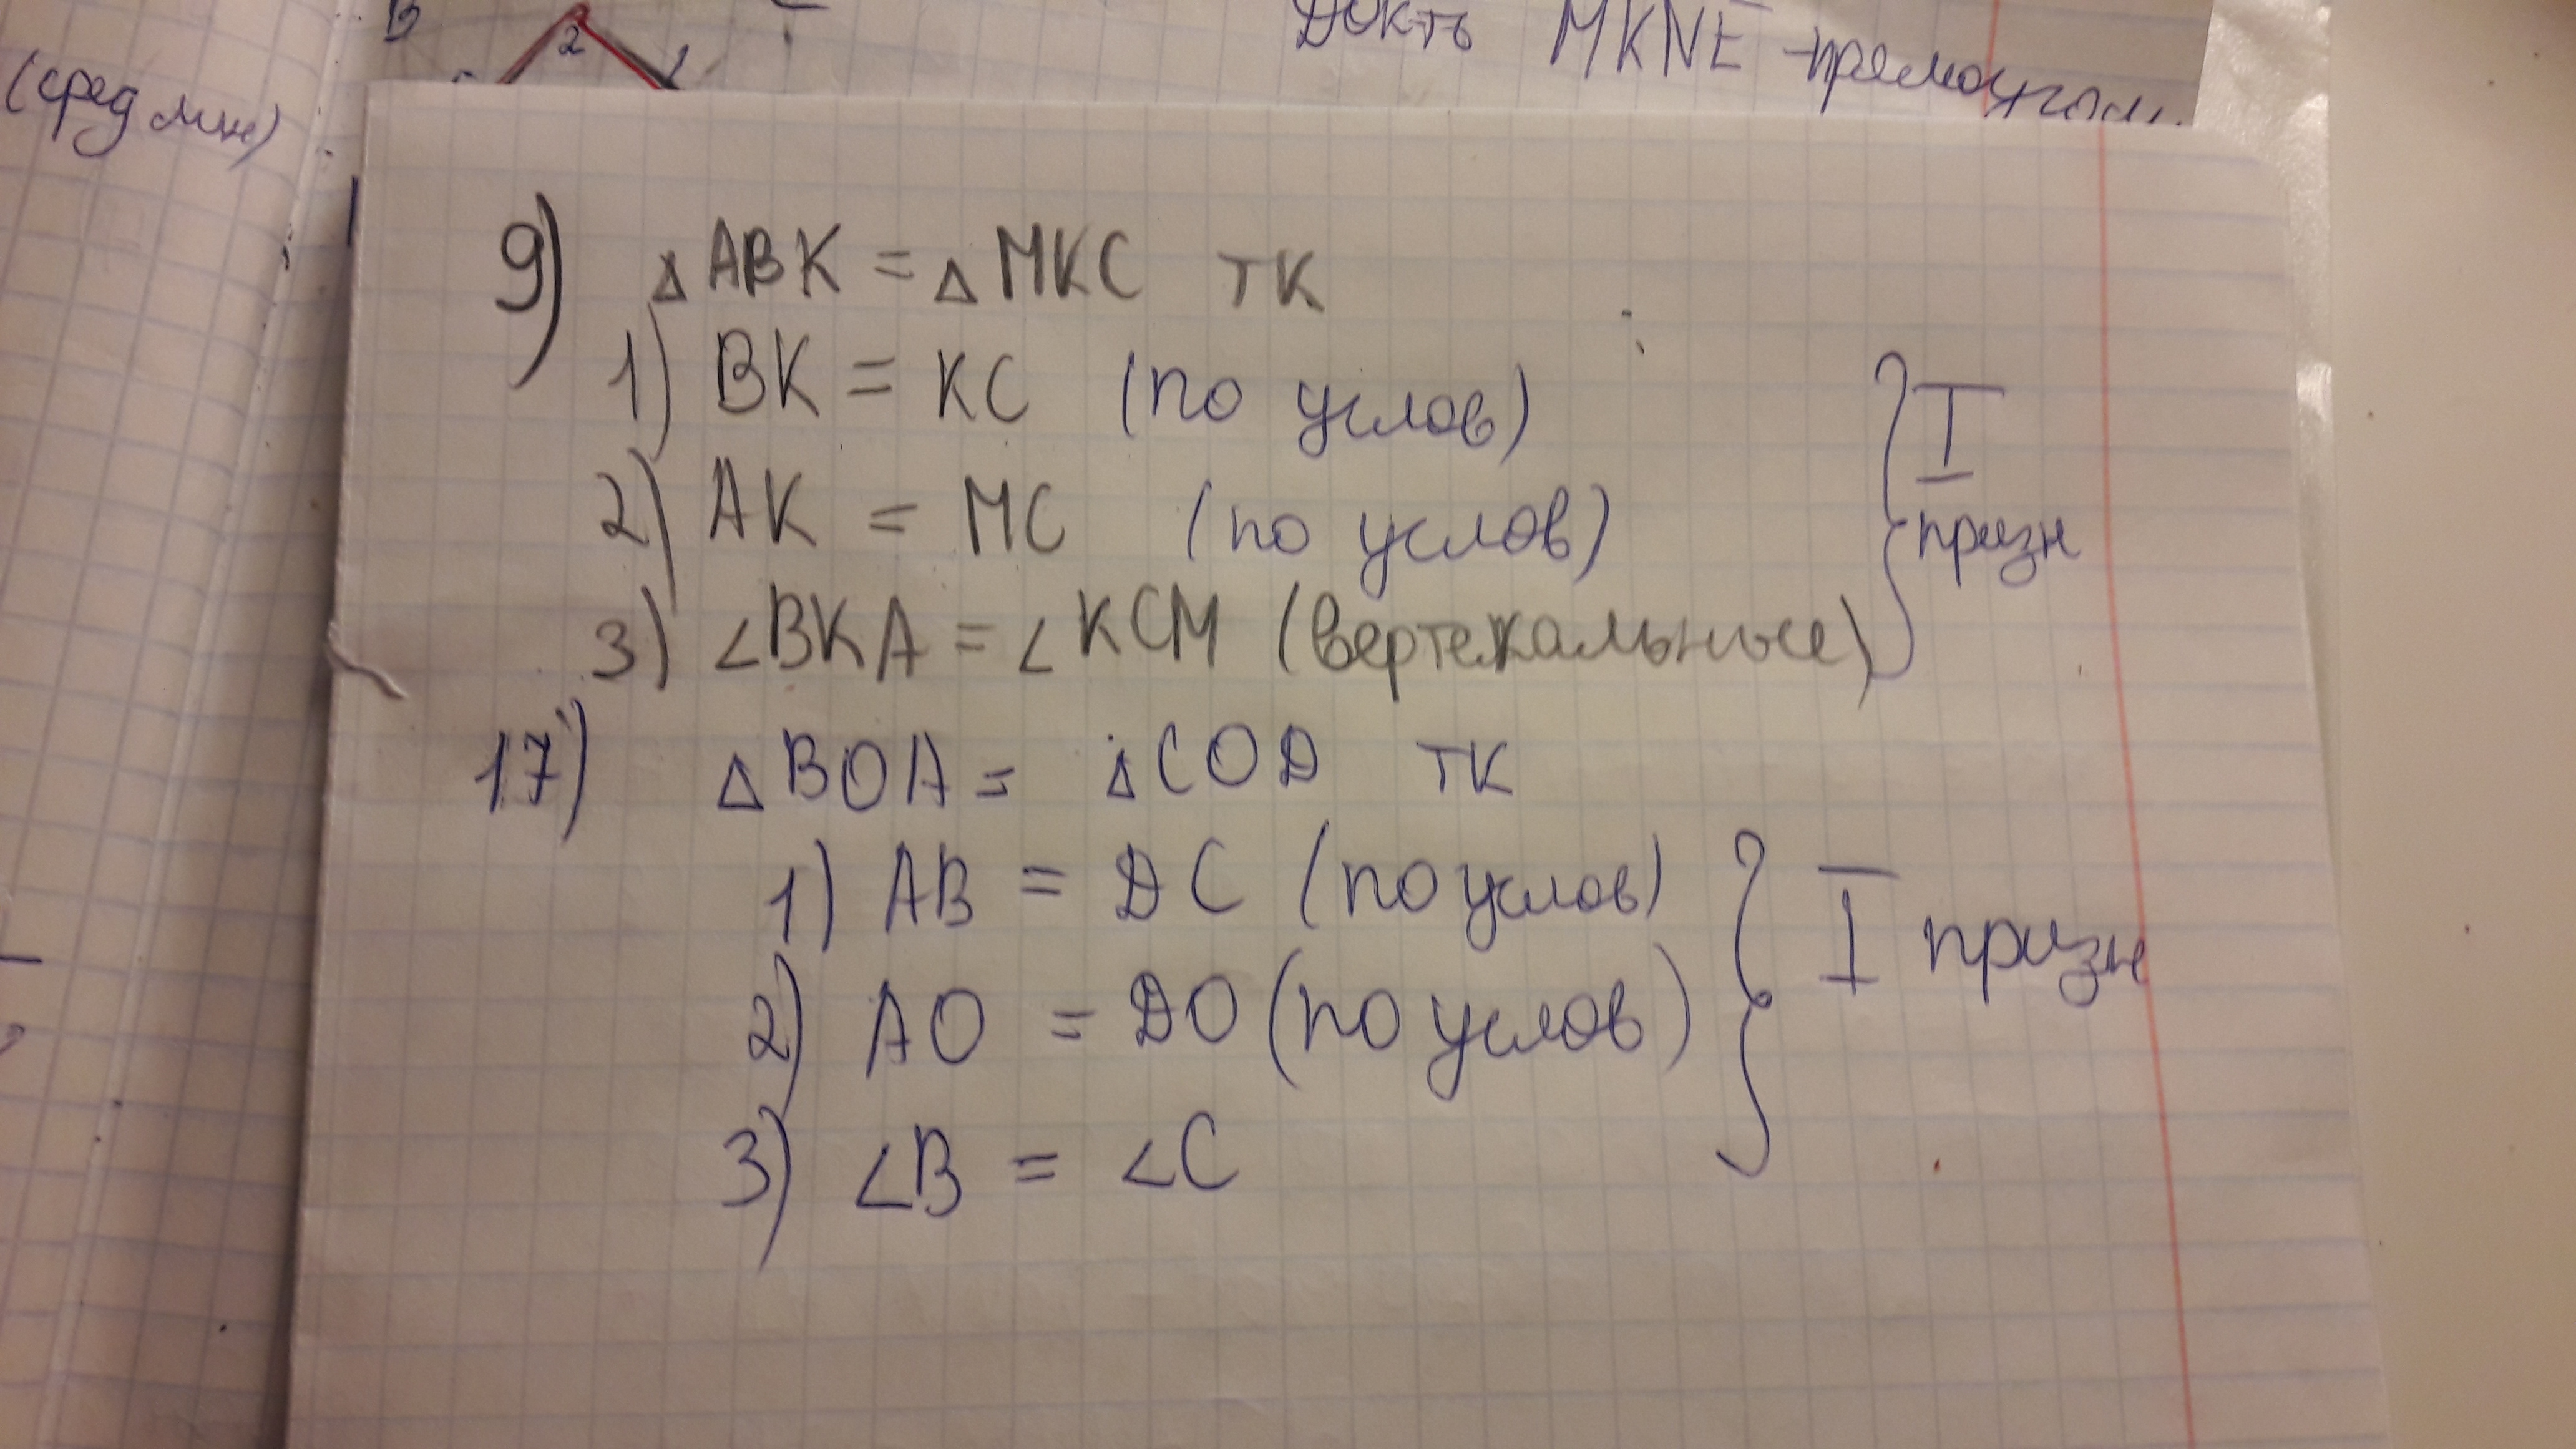 В 2
Докть MKNE -прямоугольн.
(сред лин)
9) △ ABK = △ MKC тк
1) BK = KC (по услов)
2) AK = MC (по услов)
3) ∠BKA = ∠KCM (вертекальные)
I призн
17) △ BOA = △ COD тк
1) AB = DC (по услов)
2) AO = DO (по услов)
3) ∠B = ∠C
I призн